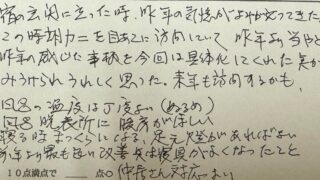 宿の玄関に立った時、昨年の気持がよみがえってきた。
この時期カニを目あてに訪問していて 昨年より
昨年の感じた事柄を今回は具体化してくれた
みうけられうれしく思った。来年も訪問するかも。
風呂の温度は丁度よい(ぬるめ)
風呂脱衣所に暖房がほしい
寝る時まっくらになる。足元灯があればよい
昨年より最も良い改善矢は寝具がよくなったこと
10点満点で 点○